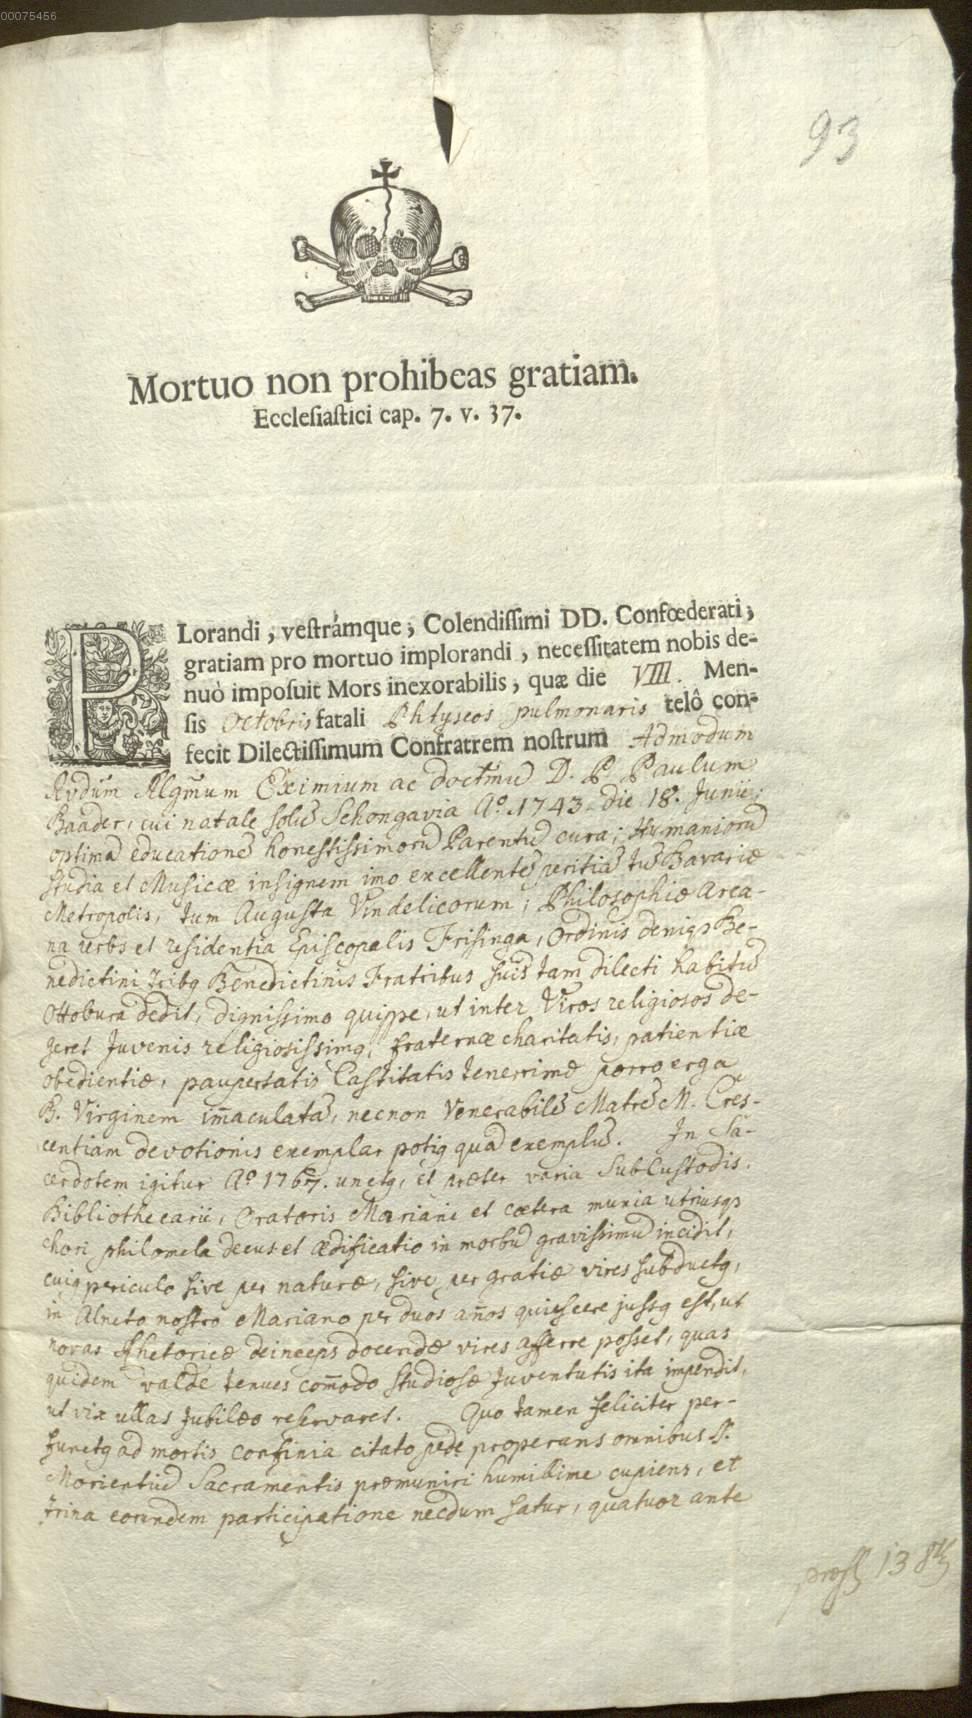 00075456
93
Mortuo non prohibeas gratiam.
Ecclesiastici cap. 7. v. 37.
PLorandi, vestrámque, Colendissimi DD. Confœderati,
gratiam pro mortuo implorandi, necessitatem nobis de-
nuò imposuit Mors inexorabilis, quæ die VIII. Men-
sis Octobris fatali Phtyseos pulmonaris telô con-
fecit Dilectissimum Confratrem nostrum Admodum
Rvdum Eximium ac doctmu D. P. Paulum
Baader, cui natale solu Schongavia Ao. 1743. die 18. Junii;
optima educatione honestissimoru Parentu cura; Humanioru
studia et Musicæ insignem imo excellente peritia tu Bavariæ
Metropolis, tum Augusta Vindelicorum; Philosophiæ Arca-
na urbs et residentia Episcopalis Frisinga, Ordinis deniq Be-
nedictini Benedictinis Fratribus suis tam dilecti habitu
Ottobura dedit, dignissimo quippe, ut inter Viros religiosos de-
geret Juvenis religiosissimq, fraternæ charitatis, patientiæ
obedientiæ, paupertatis Castitatis tenerrimæ porro erga
B. Virginem im̄aculata, necnon Venerabile Matre M. Cres-
centiam devotionis exemplar potiq qua exemplu. In Sa-
cerdotem igitur Ao 1767. unctq, et præter varia SubCustodis,
Bibliothecarii, Oratoris Mariani et cœtera munia utriusq
chori philomela decus et ædificatio in morbu gravissimu incidit,
cuiq periculo sive per naturæ, sive per gratiæ vires subductq,
in Alneto nostro Mariano per duos an̄os quiescere jussq est, ut
novas Rhetoricæ deinceps docendæ vires afferre posset, quas
quidem valde tenues com̄odo studiosæ Juventutis ita impendit,
ut vix ullas Jubilæo reservaret. Quo tamen feliciter per-
functq ad mortis confinia citato pede properans omnibus S.
Morientiu Sacramentis præmuniri humillime cupiens, et
trina eorundem participatione necdum satur, quatuor ante
13